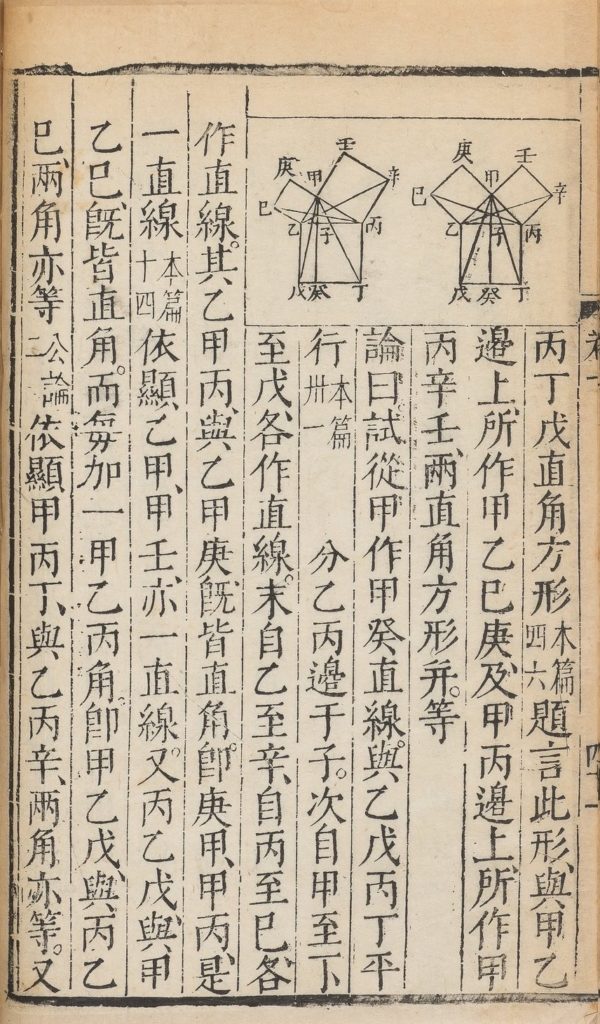 丙丁戊直角方形本篇四六題言此形、與甲乙
邊上、所作甲乙巳庚、及甲丙邊上、所作甲
丙辛壬、兩直角方形幷。等
論曰。試從甲作甲癸直線。與乙戊丙丁平
行本篇卅一分乙丙邊于子。次自甲至丁
至戊、各作直線。末自乙至辛、自丙至巳、各
作直線。其乙甲丙、與乙甲庚、旣皆直角。卽庚甲、甲丙、是
一直線本篇十四依顯、乙甲、甲壬、亦一直線。又丙乙戊、與甲
乙巳、旣皆直角。而每加一甲乙丙角。卽甲乙戊、與、丙乙
巳、兩角亦等公論二依顯甲丙丁、與乙丙辛、兩角亦等。又
壬
庚
甲
辛
巳
乙
子
丙
戊
癸
丁
庚
壬
甲
辛
巳
乙
子
丙
戊
癸
丁